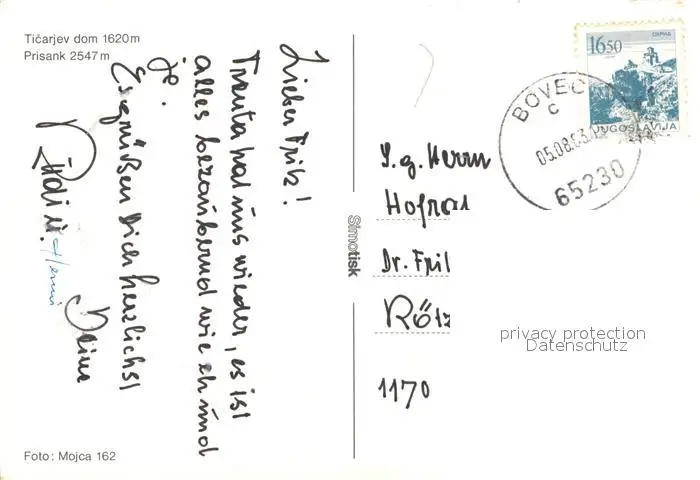 Tičarjev dom 1620m
Prisank 2547m
Lieber Fritz!
Trenta hat uns wieder, es ist
alles bezaubernd wie eh und
je.
Es grüßen Dich herzlichst
Deine
Foto: Mojca 162
Simotisk
16.50
JUGOSLAVIJA
BOVEC
C
05.08.83
65230
S.g. Herrn
Hofrat
Dr. Fri
Röt
1170
privacy protection
Datenschutz